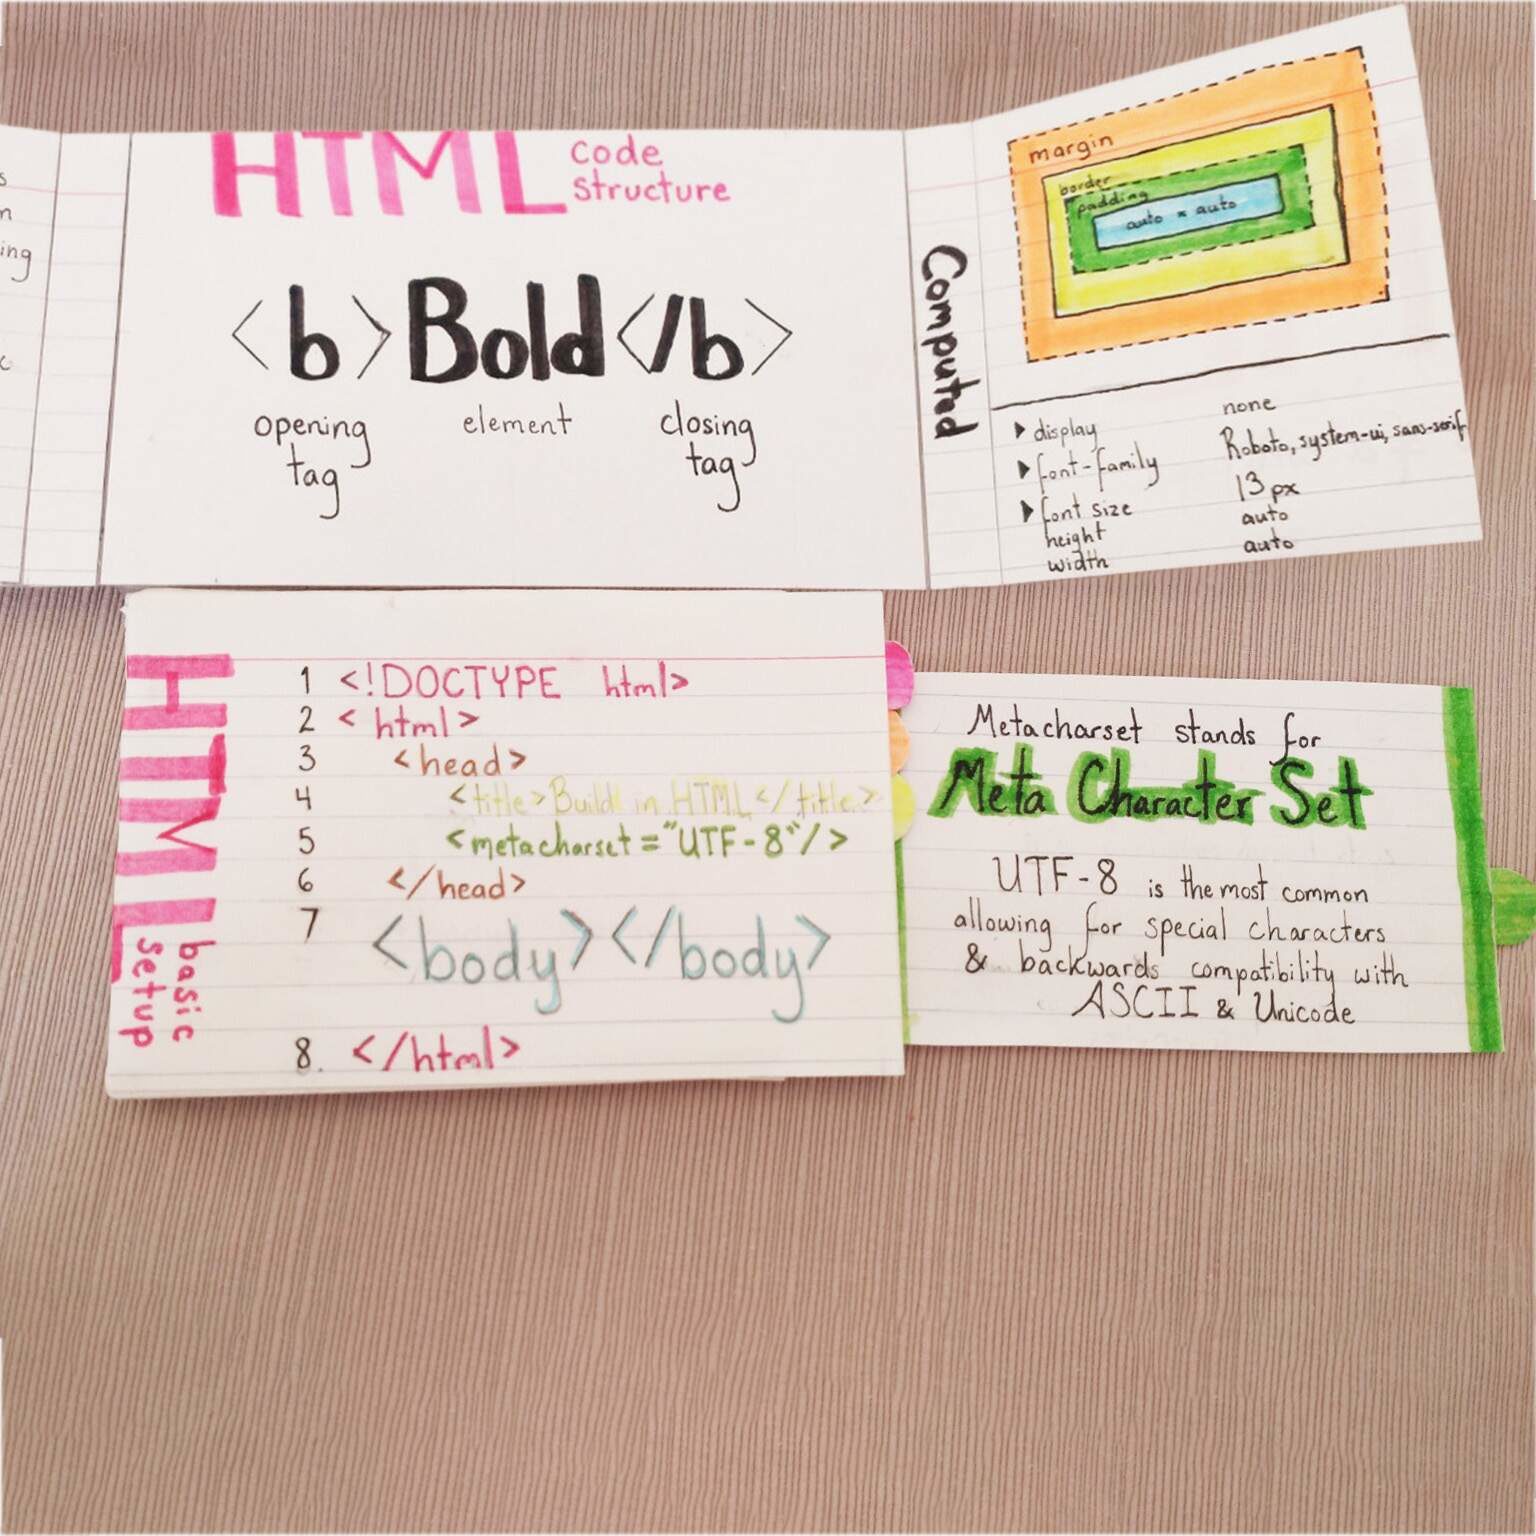 s
n
ing
c
HTML code
structure
<b>Bold</b>
opening
tag
element
closing
tag
Computed
margin
border
padding
auto × auto
▶ display none
▶ font-family Roboto, system-ui, sans-serif
▶ font size 13 px
height auto
width auto
HTML
basic
setup
1 <!DOCTYPE html>
2 < html>
3 <head>
4 <title>Build in HTML</title>
5 <metacharset="UTF-8"/>
6 </head>
7 <body></body>
8. </html>
Metacharset stands for
Meta Character Set
UTF-8 is the most common
allowing for special characters
& backwards compatibility with
ASCII & Unicode